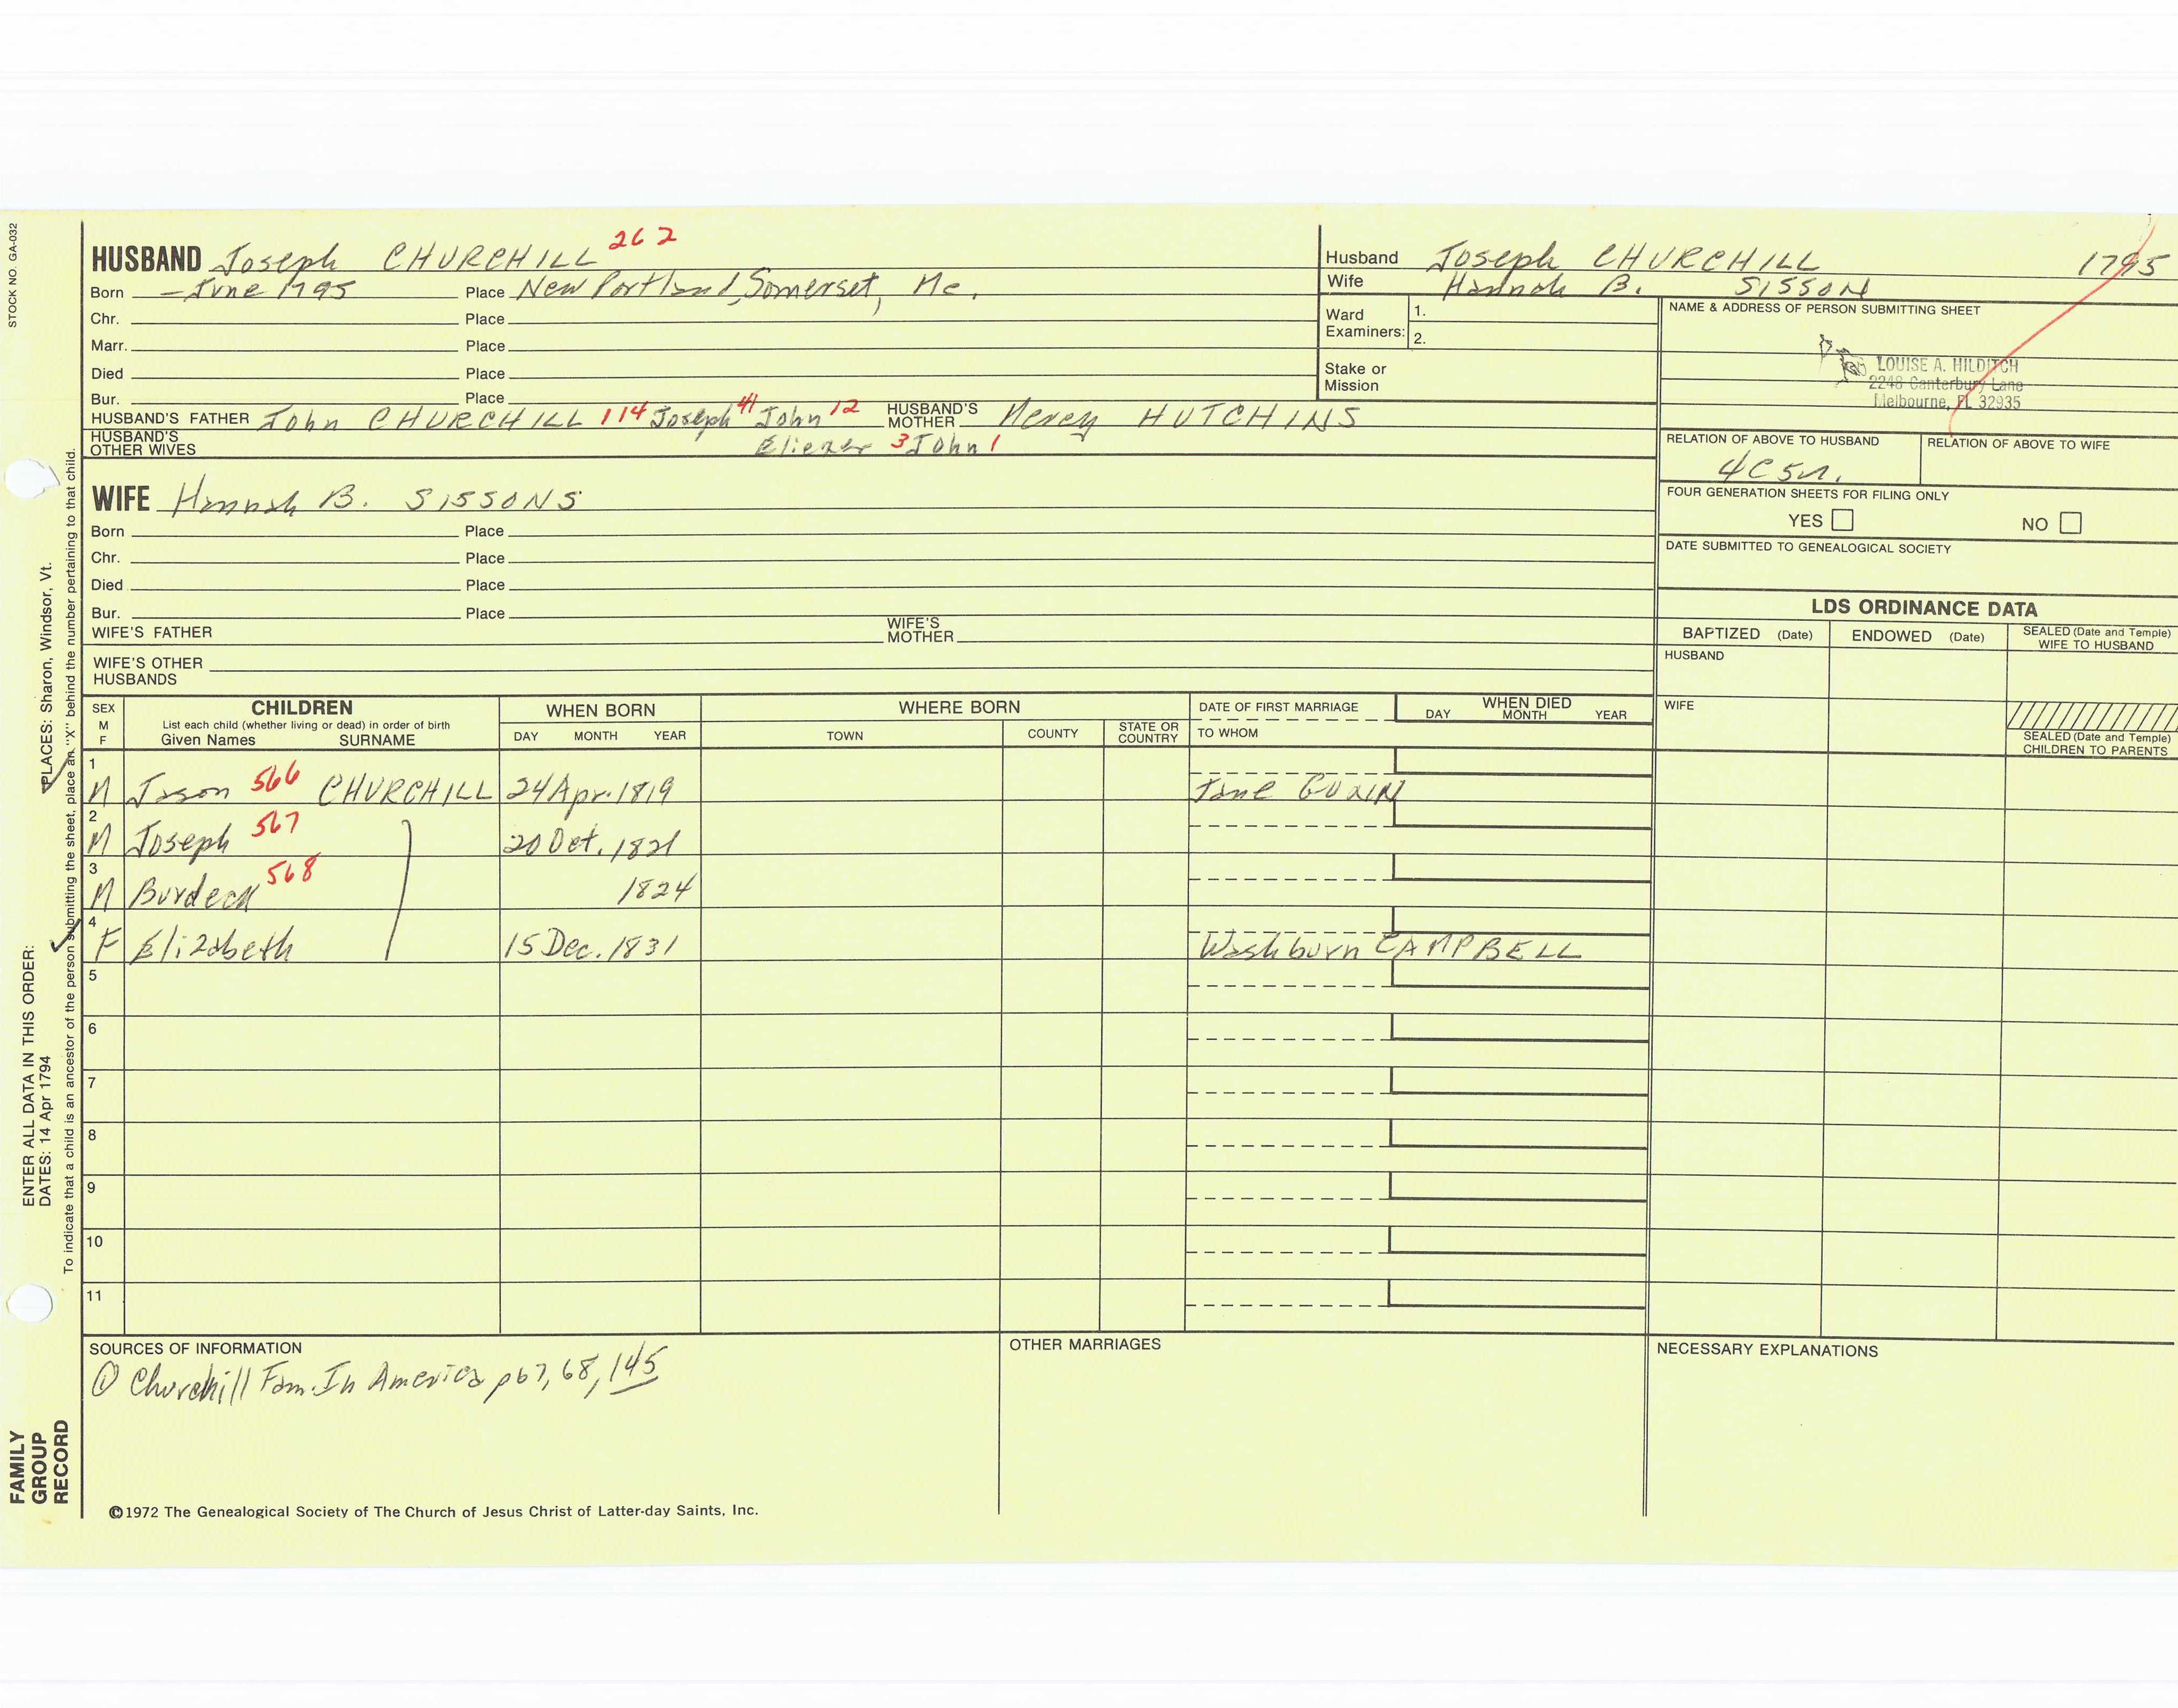 STOCK NO. GA-032
HUSBAND Joseph CHURCHILL 262
Born - June 1795 Place New Portland, Somerset, Me.
Chr. Place
Marr. Place
Died Place
Bur. Place
HUSBAND'S FATHER John CHURCHILL 114 Joseph 41 John 12 HUSBAND'S MOTHER Mercy HUTCHINS
HUSBAND'S OTHER WIVES Eliezer 3 John 1
Husband Joseph CHURCHILL 1795
Wife Hannah B. SISSON
Ward Examiners: 1.
2.
Stake or Mission
NAME & ADDRESS OF PERSON SUBMITTING SHEET
LOUISE A. HILDITCH
2248 Canterbury Lane
Melbourne, FL 32935
RELATION OF ABOVE TO HUSBAND RELATION OF ABOVE TO WIFE
4C5r.
FOUR GENERATION SHEETS FOR FILING ONLY
YES NO
DATE SUBMITTED TO GENEALOGICAL SOCIETY
WIFE Hannah B. SISSONS
Born Place
Chr. Place
Died Place
Bur. Place
WIFE'S FATHER WIFE'S MOTHER
WIFE'S OTHER HUSBANDS
LDS ORDINANCE DATA
BAPTIZED (Date) ENDOWED (Date) SEALED (Date and Temple) WIFE TO HUSBAND
HUSBAND
WIFE
SEALED (Date and Temple) CHILDREN TO PARENTS
SEX M F CHILDREN WHEN BORN WHERE BORN DATE OF FIRST MARRIAGE WHEN DIED
List each child (whether living or dead) in order of birth
Given Names SURNAME DAY MONTH YEAR TOWN COUNTY STATE OR COUNTRY TO WHOM DAY MONTH YEAR
1 M Jason 566 CHURCHILL 24 Apr. 1819 Jane
2 M Joseph 567 20 Oct. 1821
3 M 568 1824
4 F Elizabeth 15 Dec. 1831 Washburn CAMPBELL
5
6
7
8
9
10
11
SOURCES OF INFORMATION
① Churchill Fam. In America p67, 68, 145
OTHER MARRIAGES
NECESSARY EXPLANATIONS
©1972 The Genealogical Society of The Church of Jesus Christ of Latter-day Saints, Inc.
FAMILY GROUP RECORD
ENTER ALL DATA IN THIS ORDER:
DATES: 14 Apr 1794 PLACES: Sharon, Windsor, Vt.
To indicate that a child is an ancestor of the person submitting the sheet, place an "X" behind the number pertaining to that child.